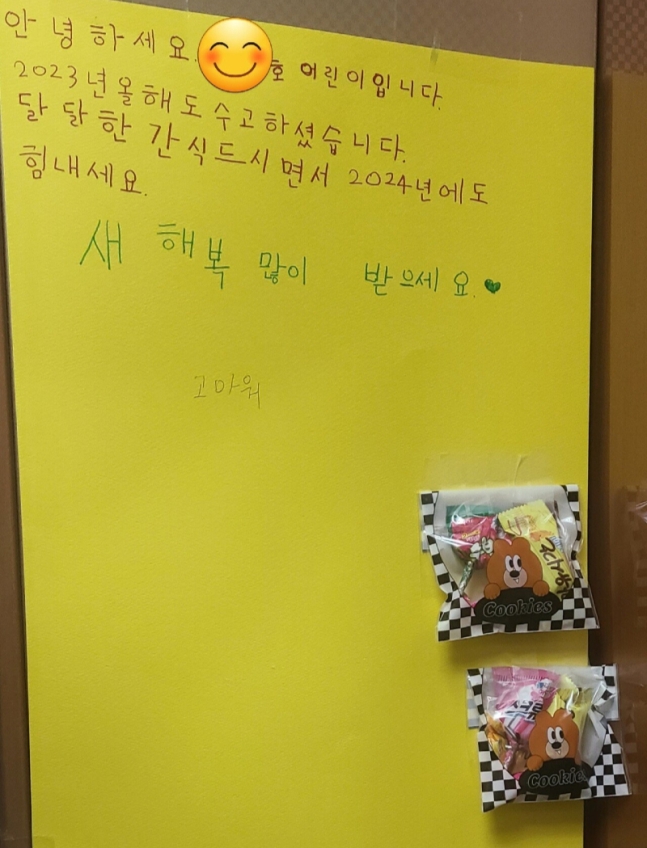 안녕하세요. 호 어린이입니다.
2023년 올해도 수고하셨습니다.
달달한 간식드시면서 2024년에도
힘내세요.
새 해 복 많이 받으세요.
고마워
Cookies
Cookie